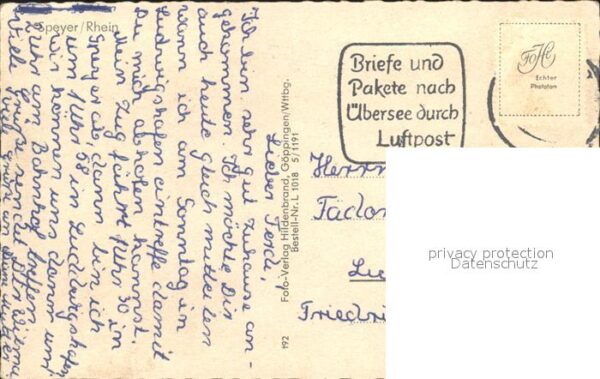 Speyer/Rhein
Lieber Ferdi,
Ich bin sehr gut Zuhause an-
gekommen. Ich möchte Dir
auch heute gleich mitteilen
wann ich am Sonntag in
Ludwigshafen eintreffe damit
Du mich abholen kannst.
Mein Zug fährt 1 Uhr 30 in
Speyer ab, dann bin ich
um 1 Uhr 58 in Ludwigshafen
Wir können uns dann um
2 Uhr am Bahnhof treffen.
Viele Grüße sendet Dir Wilma
Viele Grüße an Deine Mutter
192 Foto-Verlag Hildenbrand, Göppingen/Wttbg.
Bestell-Nr. L 1018 5/1191
Briefe und
Pakete nach
Übersee durch
Luftpost
FoHi
Echter
Phototon
Herrn
Fador
Friedri
privacy protection
Datenschutz